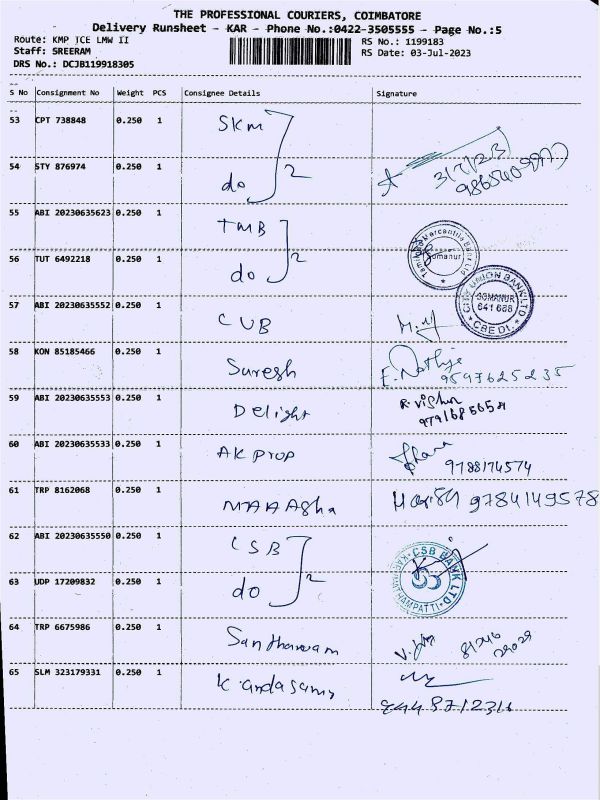 THE PROFESSIONAL COURIERS, COIMBATORE
Delivery Runsheet - KAR - Phone No.:0422-3505555 - Page No.:5
Route: KMP TCE LMW II
RS No.: 1199183
Staff: SREERAM
RS Date: 03-Jul-2023
DRS No.: DCJB119918305
S No Consignment No Weight PCS Consignee Details Signature
53 CPT 738848 0.250 1 SKM
54 STY 876974 0.250 1 do 2 31/7/23
55 ABI 20230635623 0.250 1 TMB
Tamilnad Mercantile Bank Ltd
Somanur
56 TUT 6492218 0.250 1 do 2
CITY UNION BANK LTD
SOMANUR
641 668
CBE DT.
57 ABI 20230635552 0.250 1 CUB
58 KON 85185466 0.250 1 Suresh
9597625235
59 ABI 20230635553 0.250 1 Delight R. Vishnu
60 ABI 20230635533 0.250 1 AK prop
9788174574
61 TRP 8162068 0.250 1 9784149578
62 ABI 20230635550 0.250 1 CSB
CSB BANK LTD
63 UDP 17209832 0.250 1 do 2
64 TRP 6675986 0.250 1
65 SLM 323179331 0.250 1 K. andasamy